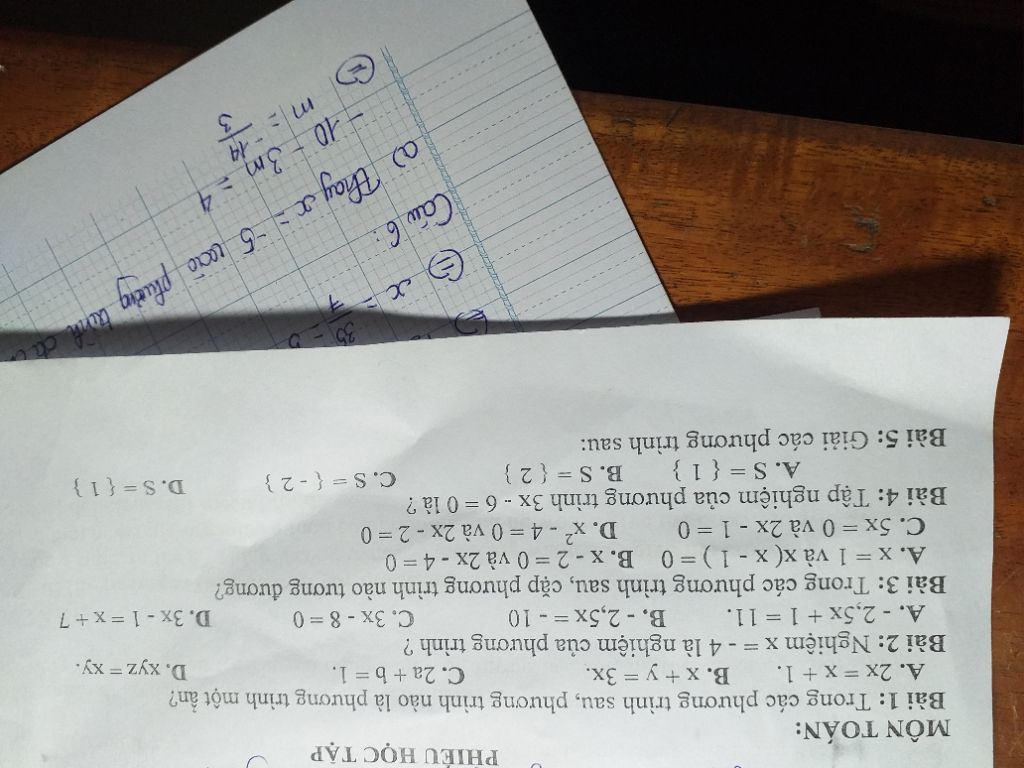 PHIẾU HỌC TẬP
MÔN TOÁN:
Bài 1: Trong các phương trình sau, phương trình nào là phương trình một ẩn?
A. 2x = x + 1. B. x + y = 3x. C. 2a + b = 1. D. xyz = xy.
Bài 2: Nghiệm x = - 4 là nghiệm của phương trình ?
A. - 2,5x + 1 = 11. B. - 2,5x = - 10 C. 3x - 8 = 0 D. 3x - 1 = x + 7
Bài 3: Trong các phương trình sau, cặp phương trình nào tương đương?
A. x = 1 và x( x - 1 ) = 0 B. x - 2 = 0 và 2x - 4 = 0
C. 5x = 0 và 2x - 1 = 0 D. x² - 4 = 0 và 2x - 2 = 0
Bài 4: Tập nghiệm của phương trình 3x - 6 = 0 là ?
A. S = { 1 } B. S = { 2 } C. S = { - 2 } D. S = { 1 }
Bài 5: Giải các phương trình sau:
⇔ x = 35/7 = 5
Câu 6:
a) Thay x = -5 vào phương trình
- 10 - 3m = 4
⇔ m = -14/3